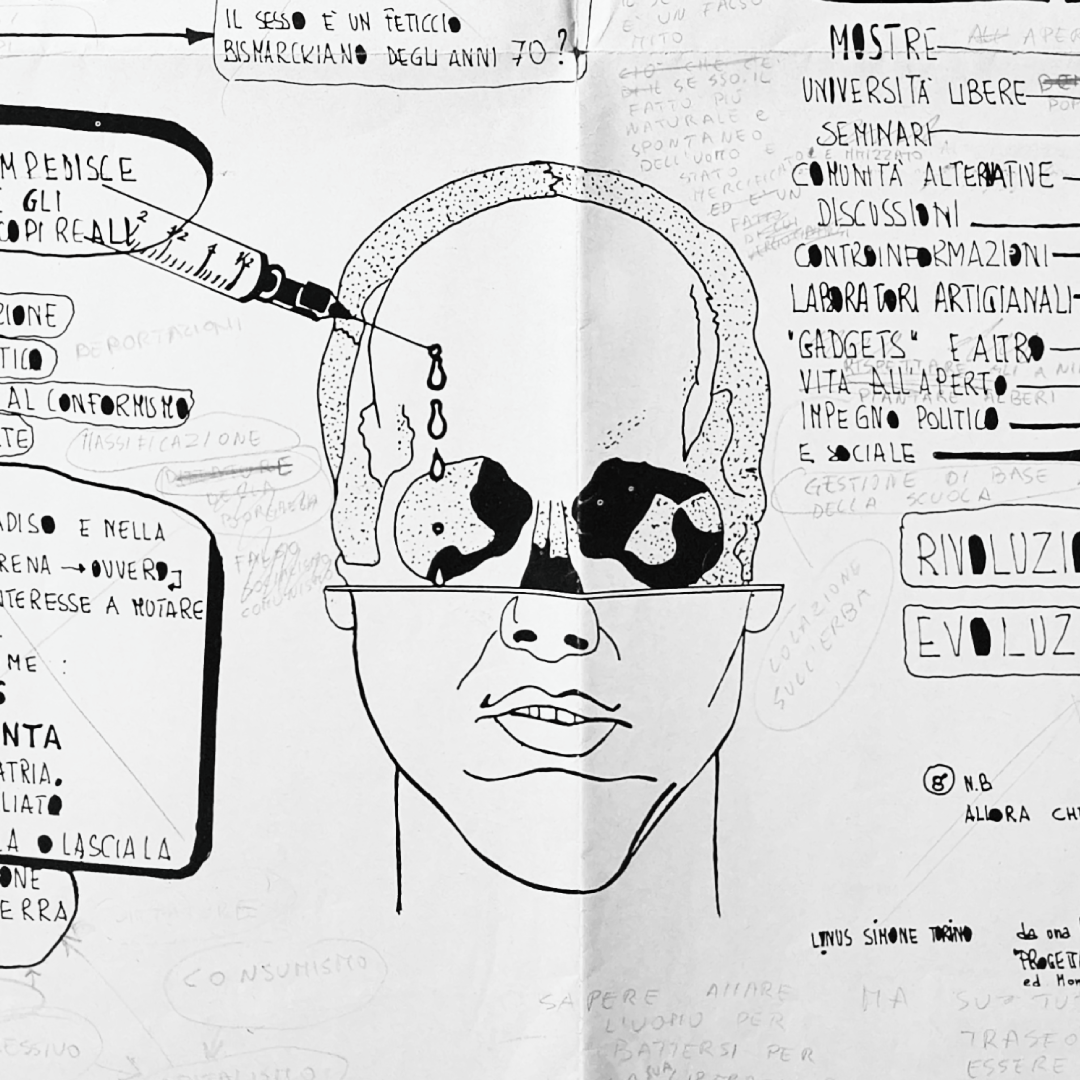 IL SESSO E' UN FETICCIO
BISMARCKIANO DEGLI ANNI 70?
E' UN FALSO
MITO
CIO' CHE CI
DI SE SSO. IL
FATTO PIÙ
NATURALE E
SPONTANEO
DELL'UOMO E
STATO
MERCIFICATO E
ED E' UN
FATTO
MPEDISCE
E GLI
COPI REALI
2
1
ZIONE
TICO
AL CONFORMISMO
TE
DEPORTAZIONI
MASSIFICAZIONE
DELLA
BORGHESIA
FALSO
SOCIALISMO
COMUNISMO
ADISO E NELLA
RENA → OVVERO
NTERESSE A MUTARE
ME :
S
NTA
ATRIA.
LIATO
LA O LASCIALA
ONE
ERRA
CONSUMISMO
ESSIVO
MOSTRE
ALL'APER
UNIVERSITÀ LIBERE
SEMINARI
COMUNITÀ ALTERNATIVE
DISCUSSIONI
CONTROINFORMAZIONI
LABORATORI ARTIGIANALI
"GADGETS" E ALTRO
RISPETTARE GLI ANI
VITA ALL'APERTO
PIANTARE ALBERI
IMPEGNO POLITICO
E SOCIALE
GESTIONE DI BASE
DELLA SCUOLA
RIVOLUZI
EVOLUZ
LOCAZIONE
SULL'ERBA
8 N.B
ALLORA CH
LINUS SIMONE TORINO
da una
"PROGETT
ed Mon
SAPERE AMARE MA
L'UOMO PER
BATTERSI PER
SUA
TRASFO
ESSERE